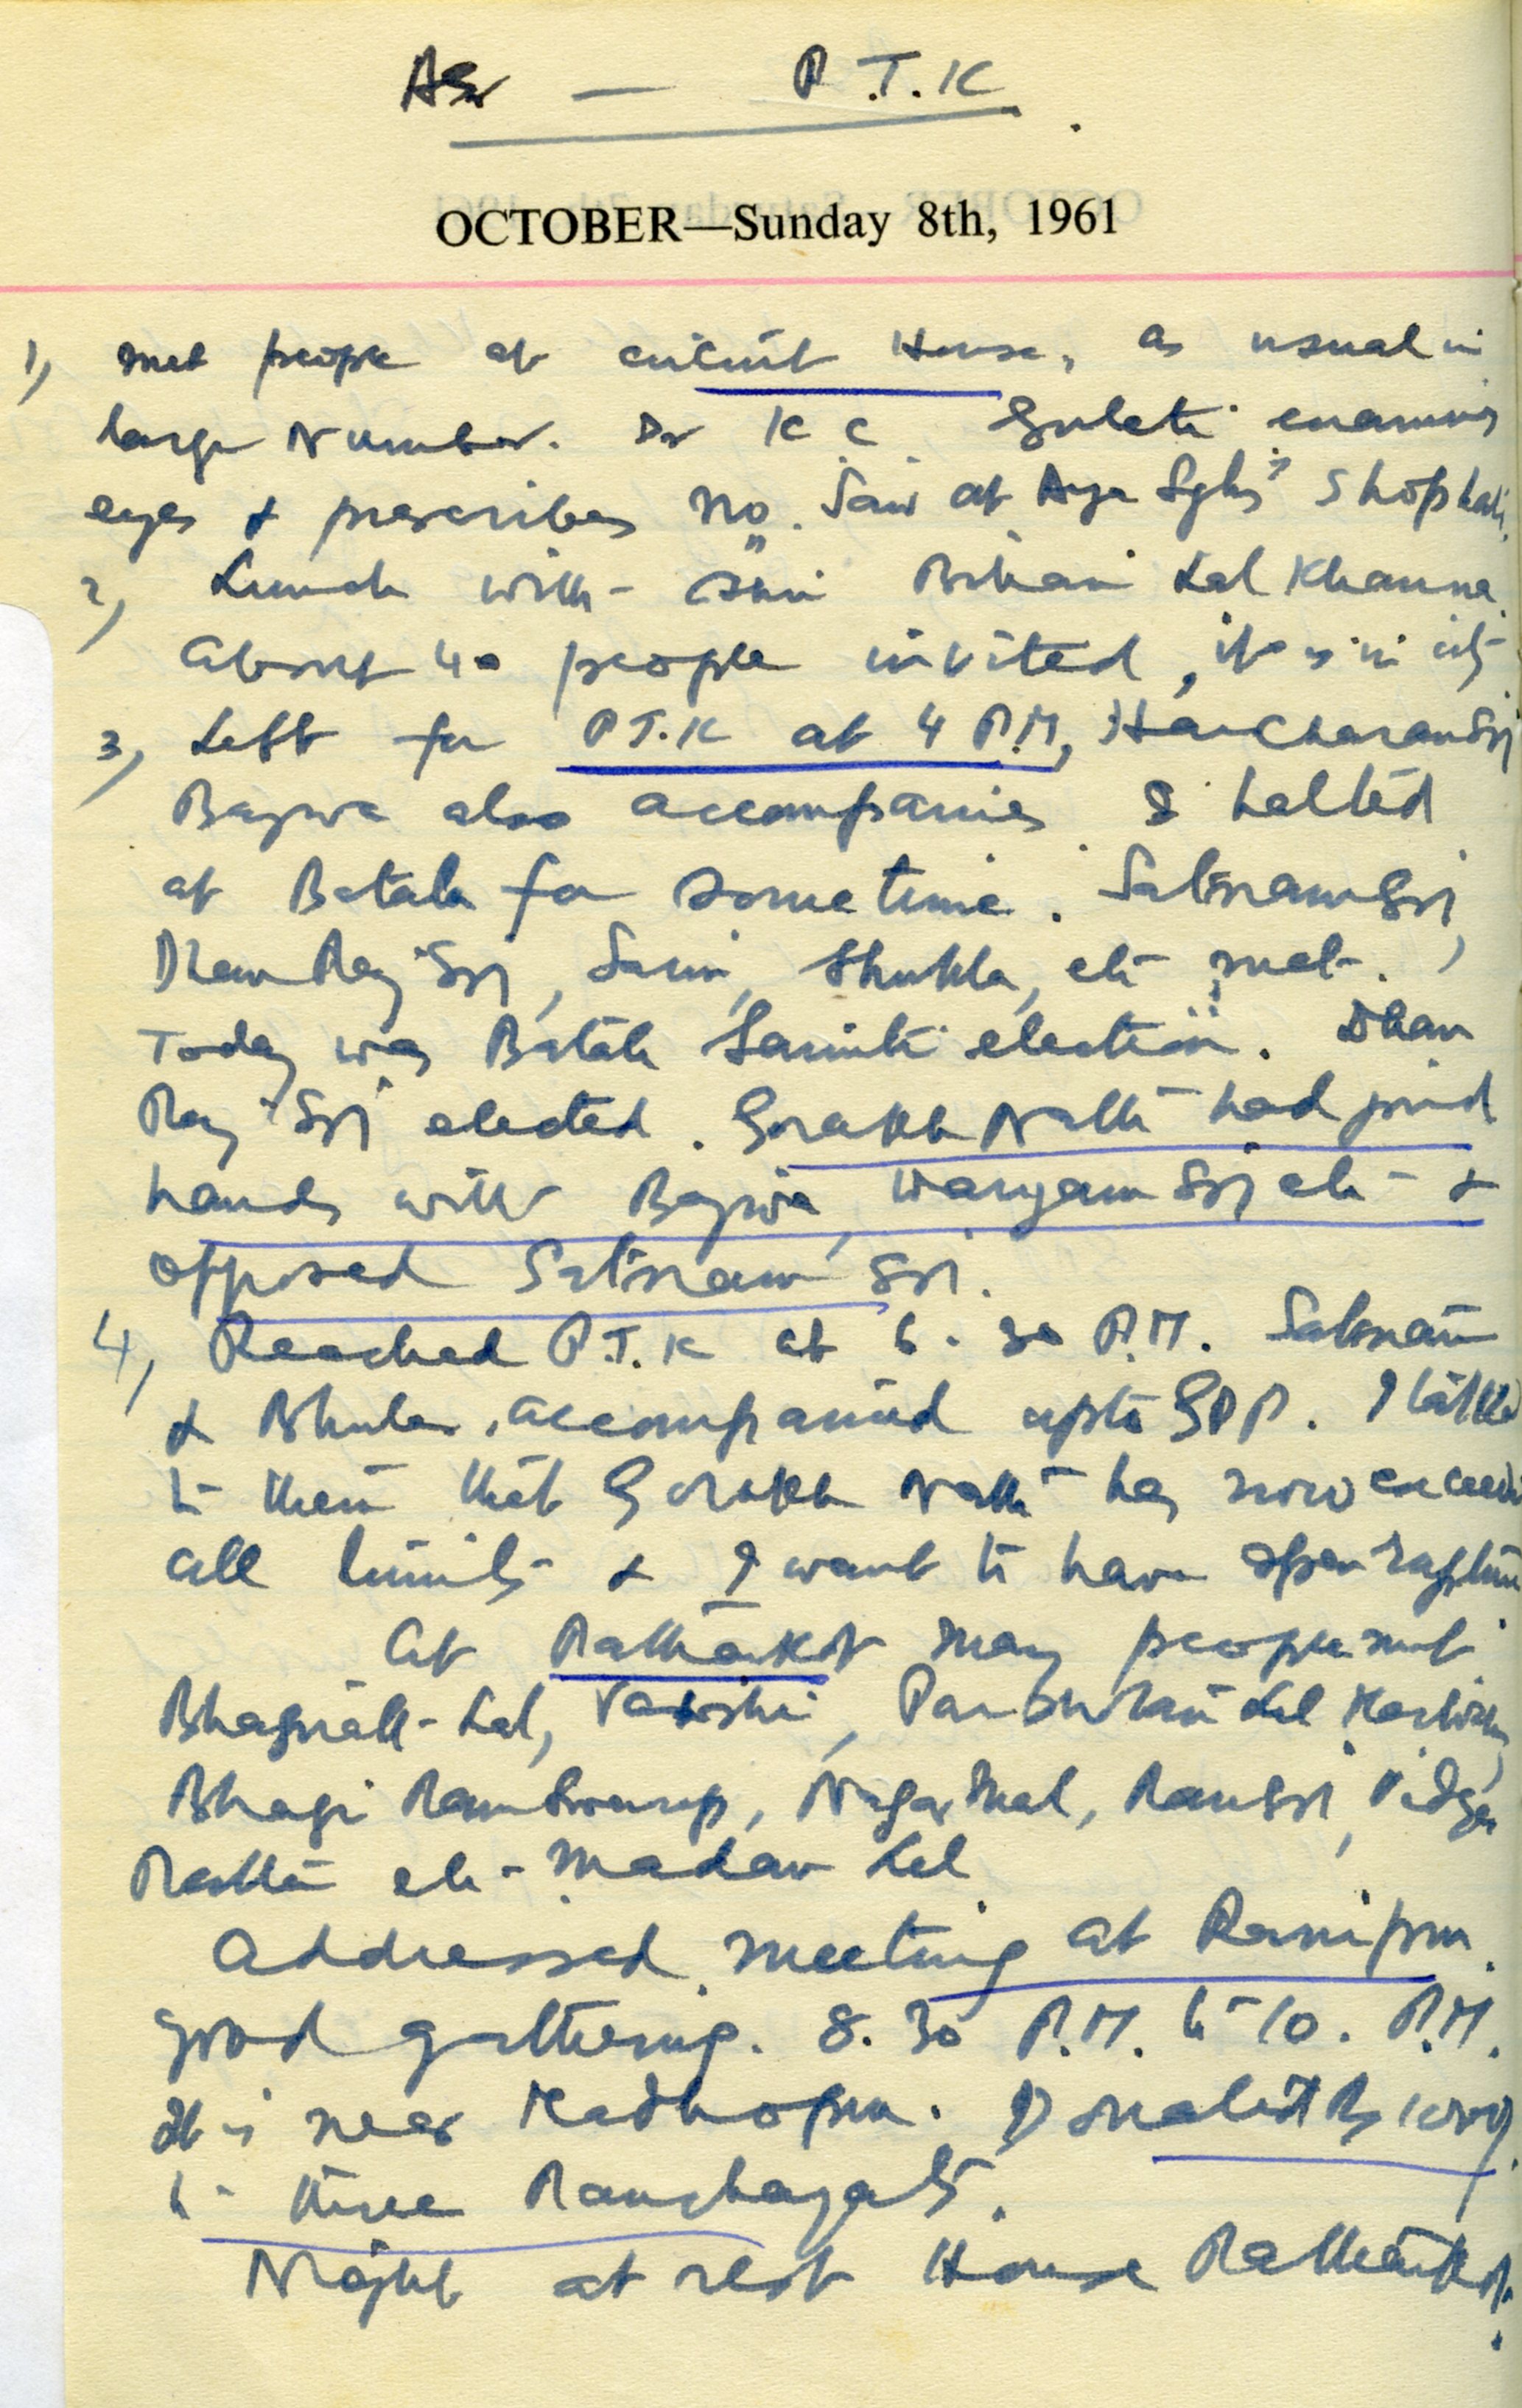 ASr — P.T.K.
OCTOBER—Sunday 8th, 1961
1) met people at circuit House, as usual in
large Number. Dr K C Gulati examines
eyes & prescribes No. Saw at Shop
2) Lunch with Shri Bihari Lal Khanna.
About 40 people invited, it is in city
3) Left for P.T.K at 4 P.M, Harcharan Sgh
Bajwa also accompanies. I halted
at Batala for some time. Satnam Sgh,
Dhan Raj Sgh, Saini, Shukla, etc met.
Today was Batala Samiti election. Dhan
Raj Sgh elected. Gorakh Nath had joined
hands with Bajwa, Waryam Sgh etc &
opposed Satnam Sgh.
4) Reached P.T.K at 6.30 P.M. Satnam
& Bhular accompanied upto GDP. I talked
to them that Gorakh Nath has now exceeded
all limits & I want to have open rapture
At Pathankot many people met
Bhagnath Lal, Lal
Bhagi Ram Swarup, Nagar Mal, Ram Sgh, Vidya
etc - Madan Lal
Addressed meeting at Ranipur.
good gathering. 8.30 P.M. to 10. P.M.
It is near Madhopur. Donated Rs
to three Panchayats.
Night at rest House Pathankot.